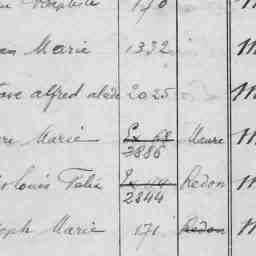 Baptiste 170
an Marie 1332 M
tave alfred alcide 2025 M
re Marie Ex 68 3886 Maure M
Louis Felix Ex 2844 Redon M
seph Marie 171 Redon M